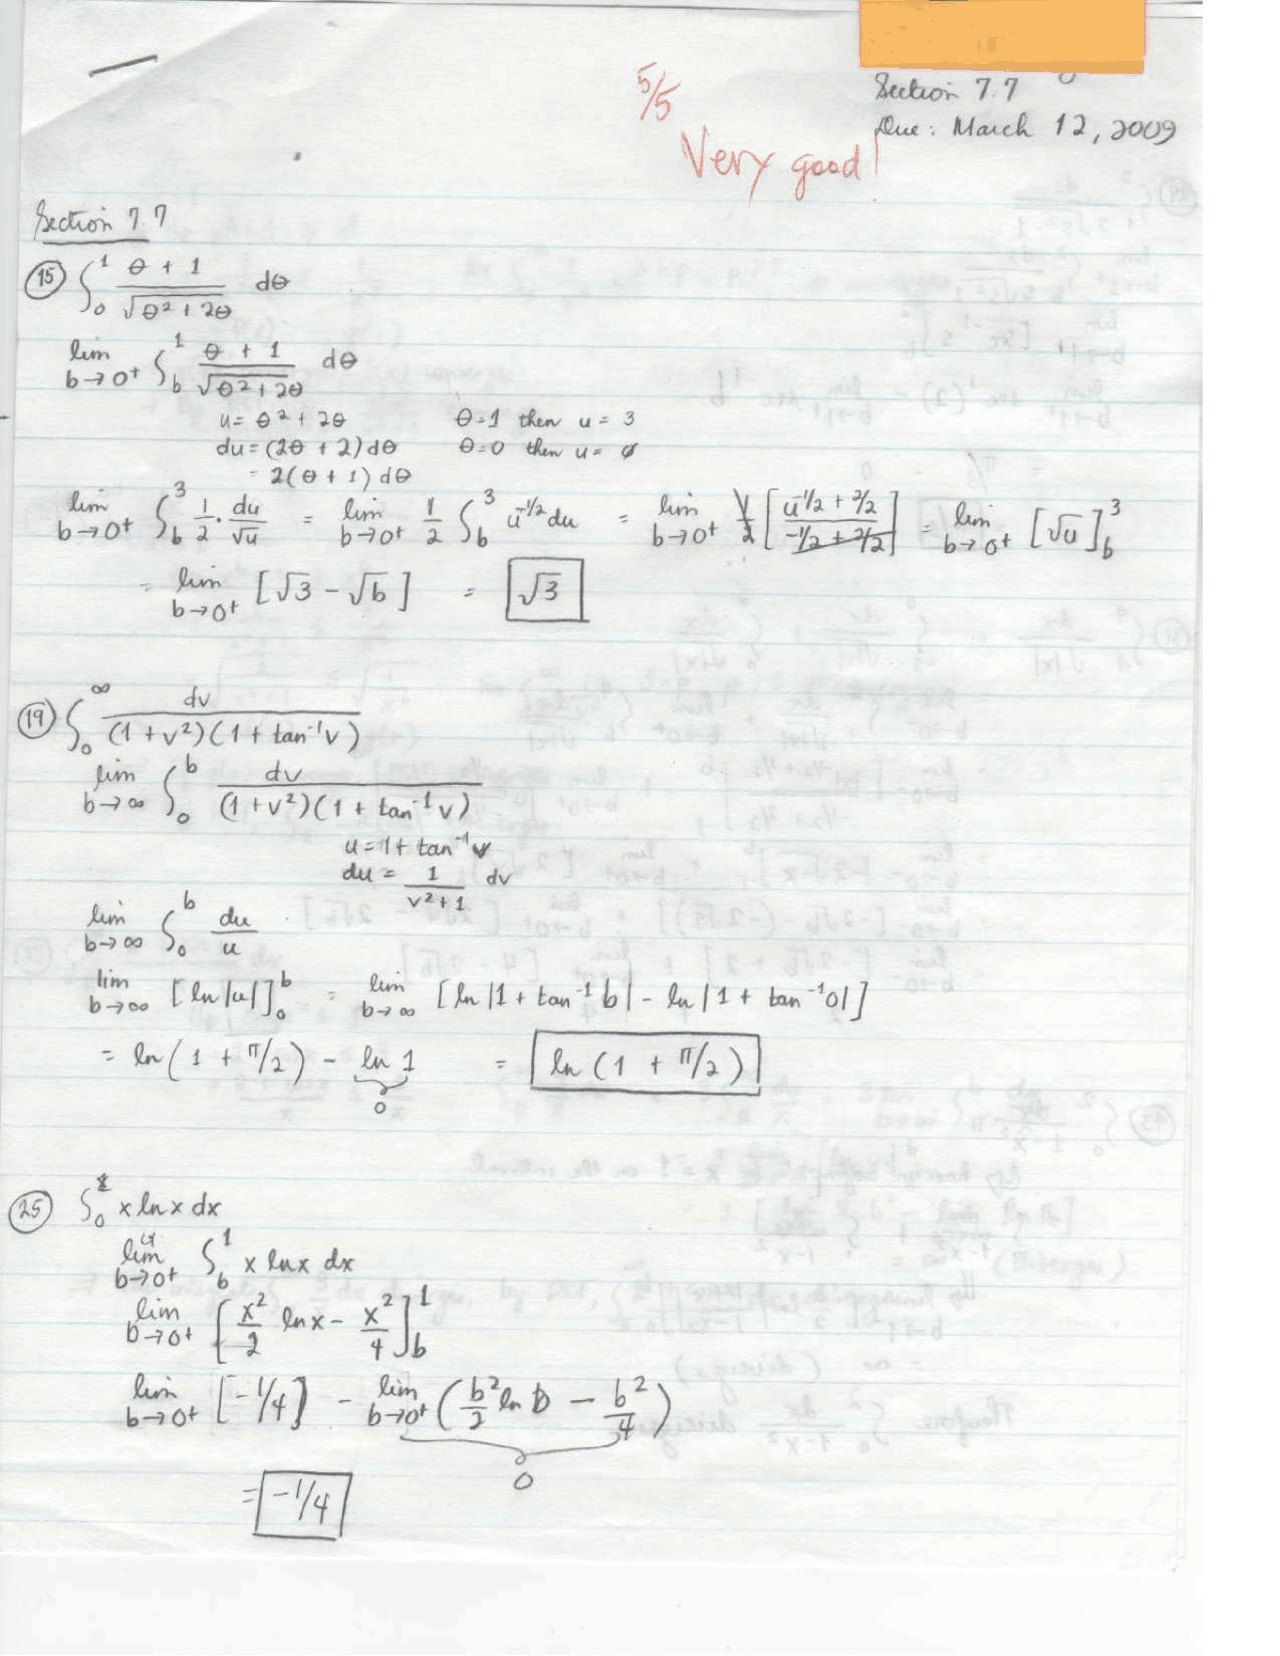 5/5
Section 7.7
Due: March 12, 2009
Very good!
Section 7.7
(15) ∫₀¹ (θ + 1)/√(θ² + 2θ) dθ
lim b→0⁺ ∫_b^1 (θ + 1)/√(θ² + 2θ) dθ
u = θ² + 2θ θ=1 then u = 3
du = (2θ + 2)dθ θ=0 then u = 0
= 2(θ + 1)dθ
lim b→0⁺ ∫_b^3 1/2 · du/√u = lim b→0⁺ 1/2 ∫_b^3 u^(-1/2) du = lim b→0⁺ 1/2 [u^(-1/2 + 2/2)/(-1/2 + 2/2)] = lim b→0⁺ [√u]_b^3
= lim b→0⁺ [√3 - √b] = √3
(19) ∫₀^∞ dv/((1 + v²)(1 + tan⁻¹v))
lim b→∞ ∫₀^b dv/((1 + v²)(1 + tan⁻¹v))
u = 1 + tan⁻¹v
du = 1/(v² + 1) dv
lim b→∞ ∫₀^b du/u
lim b→∞ [ln|u|]₀^b = lim b→∞ [ln|1 + tan⁻¹b| - ln|1 + tan⁻¹0|]
= ln(1 + π/2) - ln 1 = ln(1 + π/2)
0
(25) ∫₀¹ x ln x dx
lim b→0⁺ ∫_b^1 x ln x dx
lim b→0⁺ [x²/2 ln x - x²/4]_b^1
lim b→0⁺ [-1/4] - lim b→0⁺ (b²/2 ln b - b²/4)
0
= -1/4